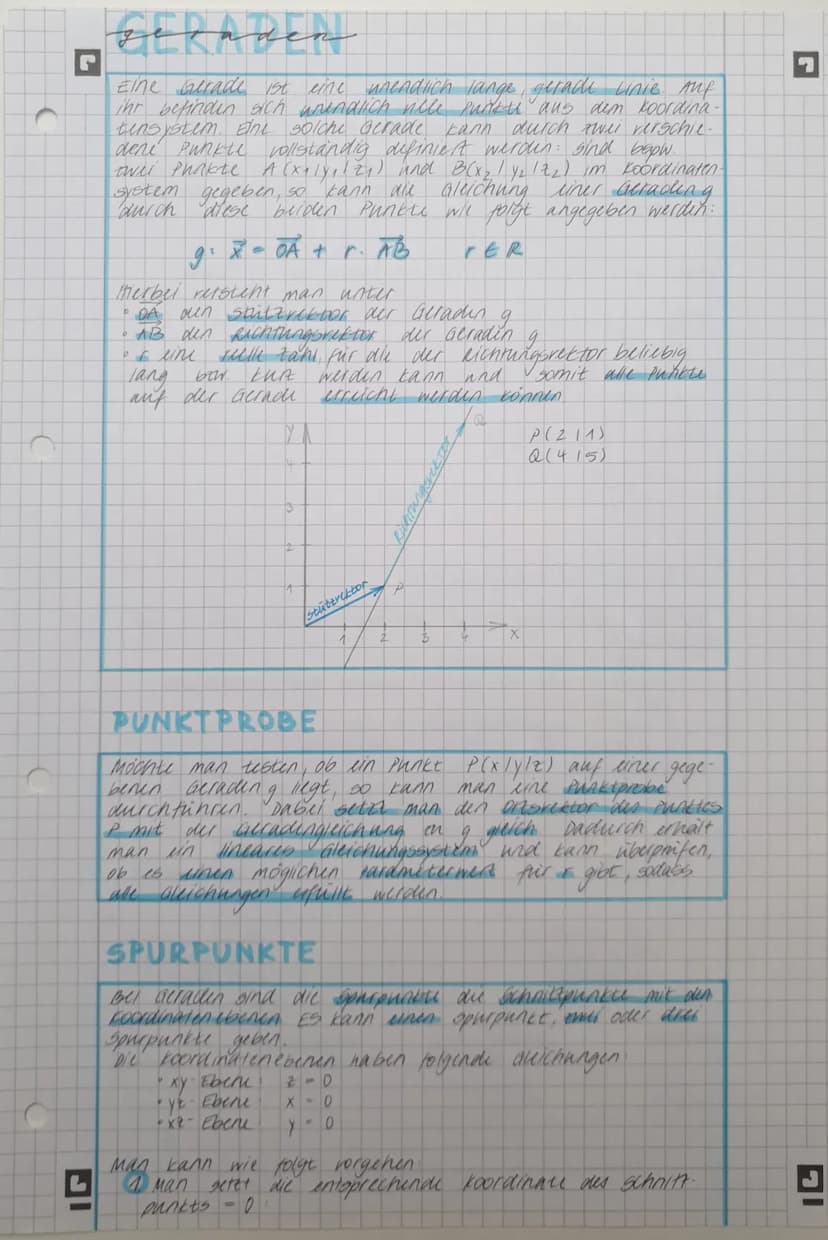 GERADEN
geraden
Eine Gerade ist eine unendlich lange, gerade Linie. Auf
ihr befinden sich unendlich viele Punkte aus dem Koordina-
tensystem. Eine solche Gerade kann durch zwei verschie-
dene Punkte vollständig definiert werden: sind bspw.
zwei Punkte A(x₁|y₁|z₁) und B(x₂|y₂|z₂) im Koordinaten-
system gegeben, so kann die Gleichung einer Geraden g
durch diese beiden Punkte wie folgt angegeben werden:
g: x⃗ = OA⃗ + r · AB⃗ r ∈ R
Hierbei versteht man unter
• OA⃗ den Stützvektor der Geraden g
• AB⃗ den Richtungsvektor der Geraden g
• r eine reelle Zahl, für die der Richtungsvektor beliebig
lang bzw. kurz werden kann und somit alle Punkte
auf der Gerade erreicht werden können
y
Q
P(2|1)
Q(4|5)
4
Richtungsvektor
3
2
1
Stützvektor
P
1 2 3 4 x
PUNKTPROBE
Möchte man testen, ob ein Punkt P(x|y|z) auf einer gege-
benen Geraden g liegt, so kann man eine Punktprobe
durchführen. Dabei setzt man den Ortsvektor des Punktes
P mit der Geradengleichung von g gleich. Dadurch erhält
man ein lineares Gleichungssystem und kann überprüfen,
ob es einen möglichen Parameterwert für r gibt, sodass
alle Gleichungen erfüllt werden.
SPURPUNKTE
Bei Geraden sind die Spurpunkte die Schnittpunkte mit den
Koordinatenebenen. Es kann einen Spurpunkt, zwei oder drei
Spurpunkte geben.
Die Koordinatenebenen haben folgende Gleichungen:
• xy-Ebene: z = 0
• yz-Ebene: x = 0
• xz-Ebene: y = 0
Man kann wie folgt vorgehen:
1) Man setzt die entsprechende Koordinate des Schnitt-
punkts = 0